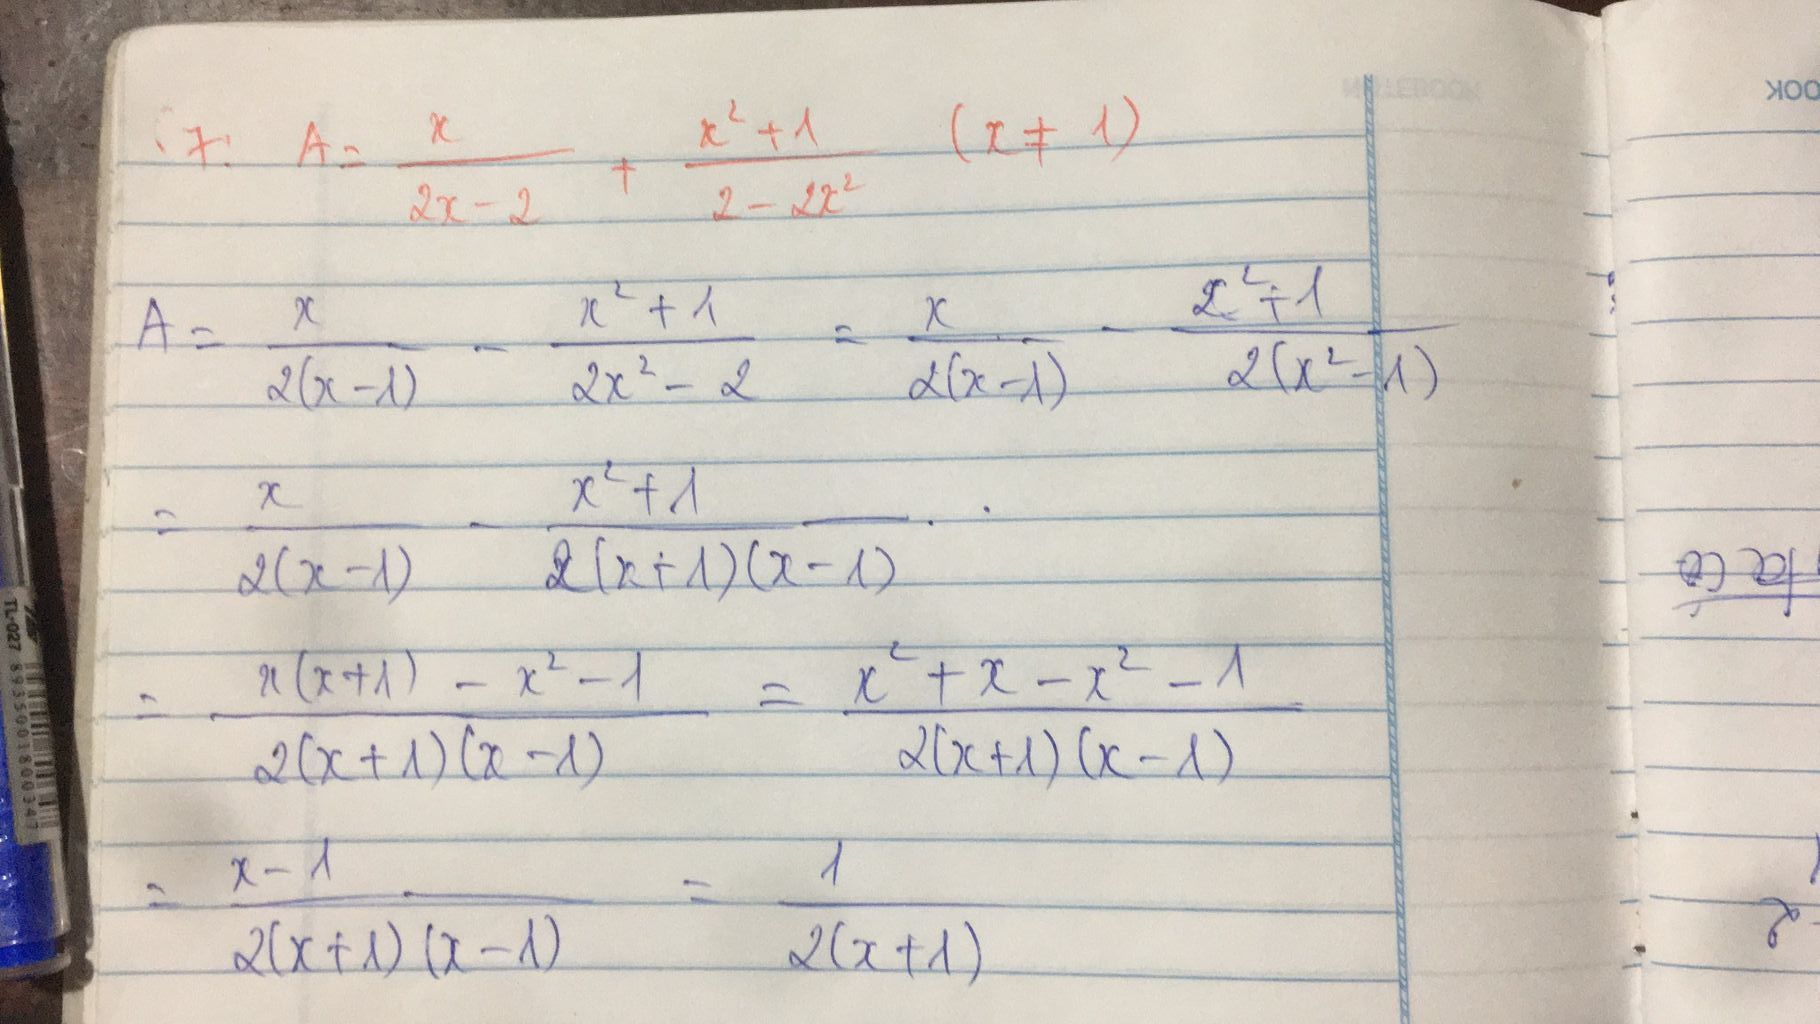 7: A = x/(2x-2) + (x²+1)/(2-2x²) (x ≠ 1)
A = x/(2(x-1)) - (x²+1)/(2x²-2) = x/(2(x-1)) - (x²+1)/(2(x²-1))
= x/(2(x-1)) - (x²+1)/(2(x+1)(x-1))
= (x(x+1) - x² - 1)/(2(x+1)(x-1)) = (x² + x - x² - 1)/(2(x+1)(x-1))
= (x-1)/(2(x+1)(x-1)) = 1/(2(x+1))
TL-027
8935001800347
NOTEBOOK
OOK
2